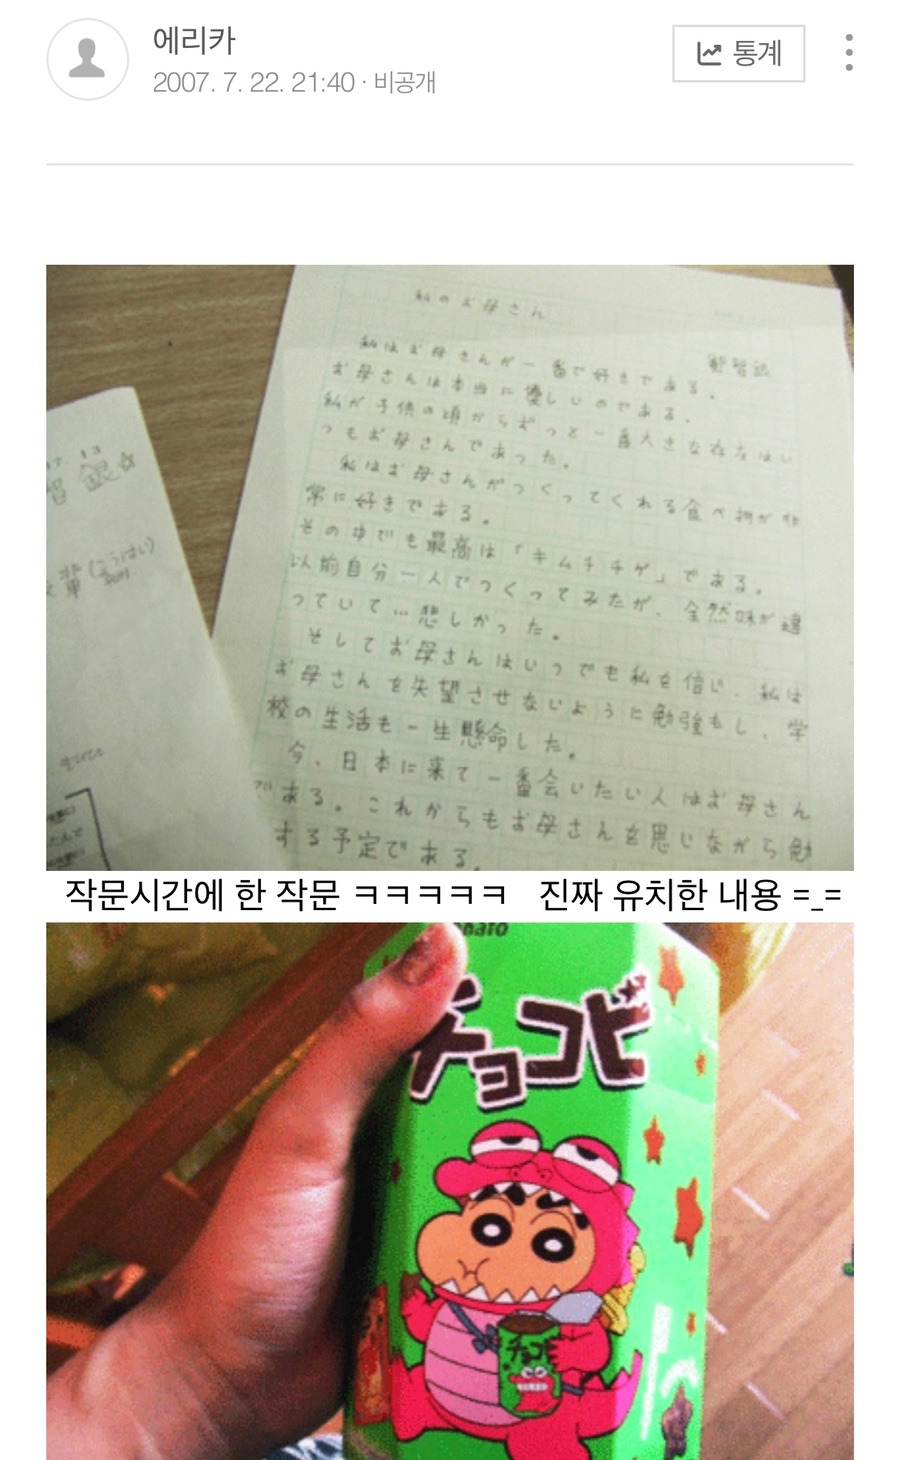 에리카
2007. 7. 22. 21:40 · 비공개
통계
私のお母さん
智銀
私はお母さんが一番で好きである。
お母さんは本当に優しいのである。
私が子供の頃からずっと一番大きな存在はい
つもお母さんであった。
私はお母さんがつくってくれる食べ物が非
常に好きである。
その中でも最高は「キムチチゲ」である。
以前自分一人でつくってみたが、全然味が違
っていて…悲しかった。
そしてお母さんはいつでも私を信じ、私は
お母さんを失望させないように勉強もし、学
校の生活も一生懸命した。
今、日本に来て一番会いたい人はお母さん
である。これからもお母さんを思いながら勉
する予定である。
13
智銀☆
輩(こうはい)
작문시간에 한 작문 ㅋㅋㅋㅋㅋ 진짜 유치한 내용 =_=
チョコビ
チョコビ